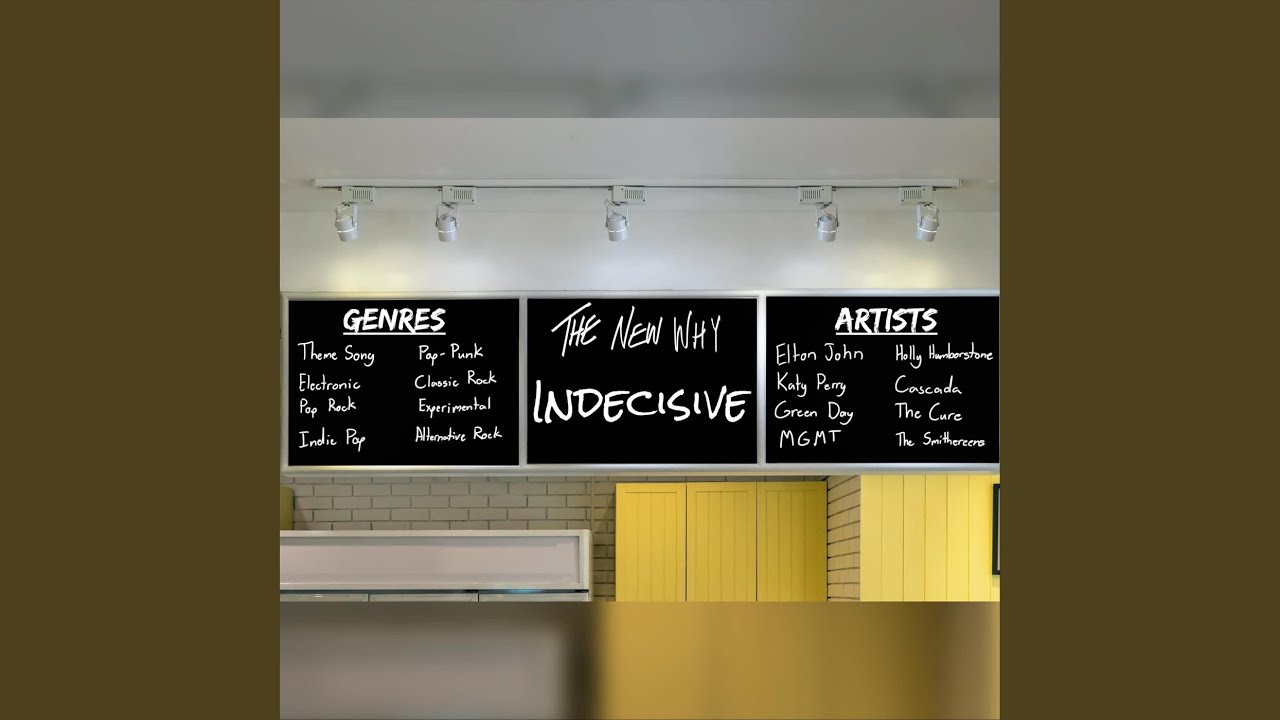 GENRES
Theme Song
Pop-Punk
Electronic
Classic Rock
Pop Rock
Experimental
Indie Pop
Alternative Rock
THE NEW WHY
INDECISIVE
ARTISTS
Elton John
Holly Humberstone
Katy Perry
Cascada
Green Day
The Cure
MGMT
The Smithereens